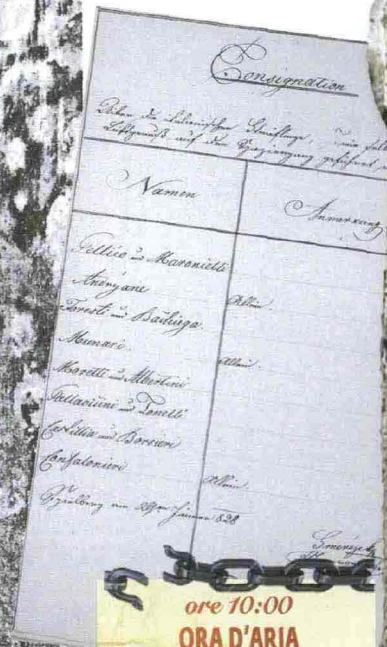 Consignation
Über die italienischen
auf den Spaziergang geführt
Namen
Anmerkung
Pellico und Maroncelli
Andryane
Allein.
Foresti und Bachiega.
Munari.
Allein.
Moretti und Albertini
Pallavicini und Tonelli
Castillia und Borsieri
Confalonieri
Allein.
Spielberg am Jänner 828
ore 10:00
ORA D'ARIA